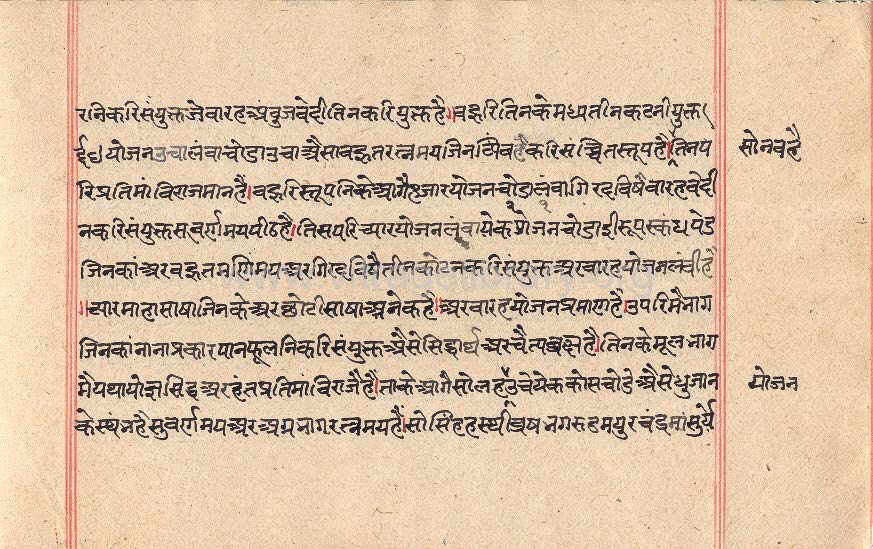 रनिकरिसंयुक्तजेवारहअंबुजवेदीतिनकरियुक्तहै।वहुरितिनकेमध्यतीनकटनीयुक्त
योजनउचालंवाचोडाउचाअैसावहुतरत्नमयजिनविंवहैकरिसंच्चितस्तूपहै।तिनप
सोनवहै
रिप्रतिमांविराजमानहै।वहुरिस्तूपनिकेआगैहजारयोजनचोडालंवागिरदविषैवारहवेदी
नकरिसंयुक्तसुवर्णमयपीठहै।तिसपरिच्यारयोजनलंवायेकयोजनचोडाइीरूपस्कंधपेड
जिनकांअरवहुतमणिमयअरगिरदविषैतीनकोटनकरिसंयुक्तअरवारहयोजनलंवीहै
।च्यारमाहासाषाजिनकेअरछोटीसाषाअनेकहै।अरवारहयोजनप्रमाणहै।उपरिमैभाग
जिनकांनानाप्रकारपानफूलनिकरिसंयुक्तअैसेसिद्धार्थअरचैत्यवृक्षहै।तिनकेमूलभाग
मैयथायोज्ञसिद्धअरहंतप्रतिमांविराजैहै।ताकेआगैसोलहउंचेयेककोसचोडेअैसेधुजान
योजन
केस्थंभहैसुवर्णमयअरअग्रभागरत्नमयहै।सोसिंहहस्थीवृषभगरुडमयुरचंद्रमांसुर्य